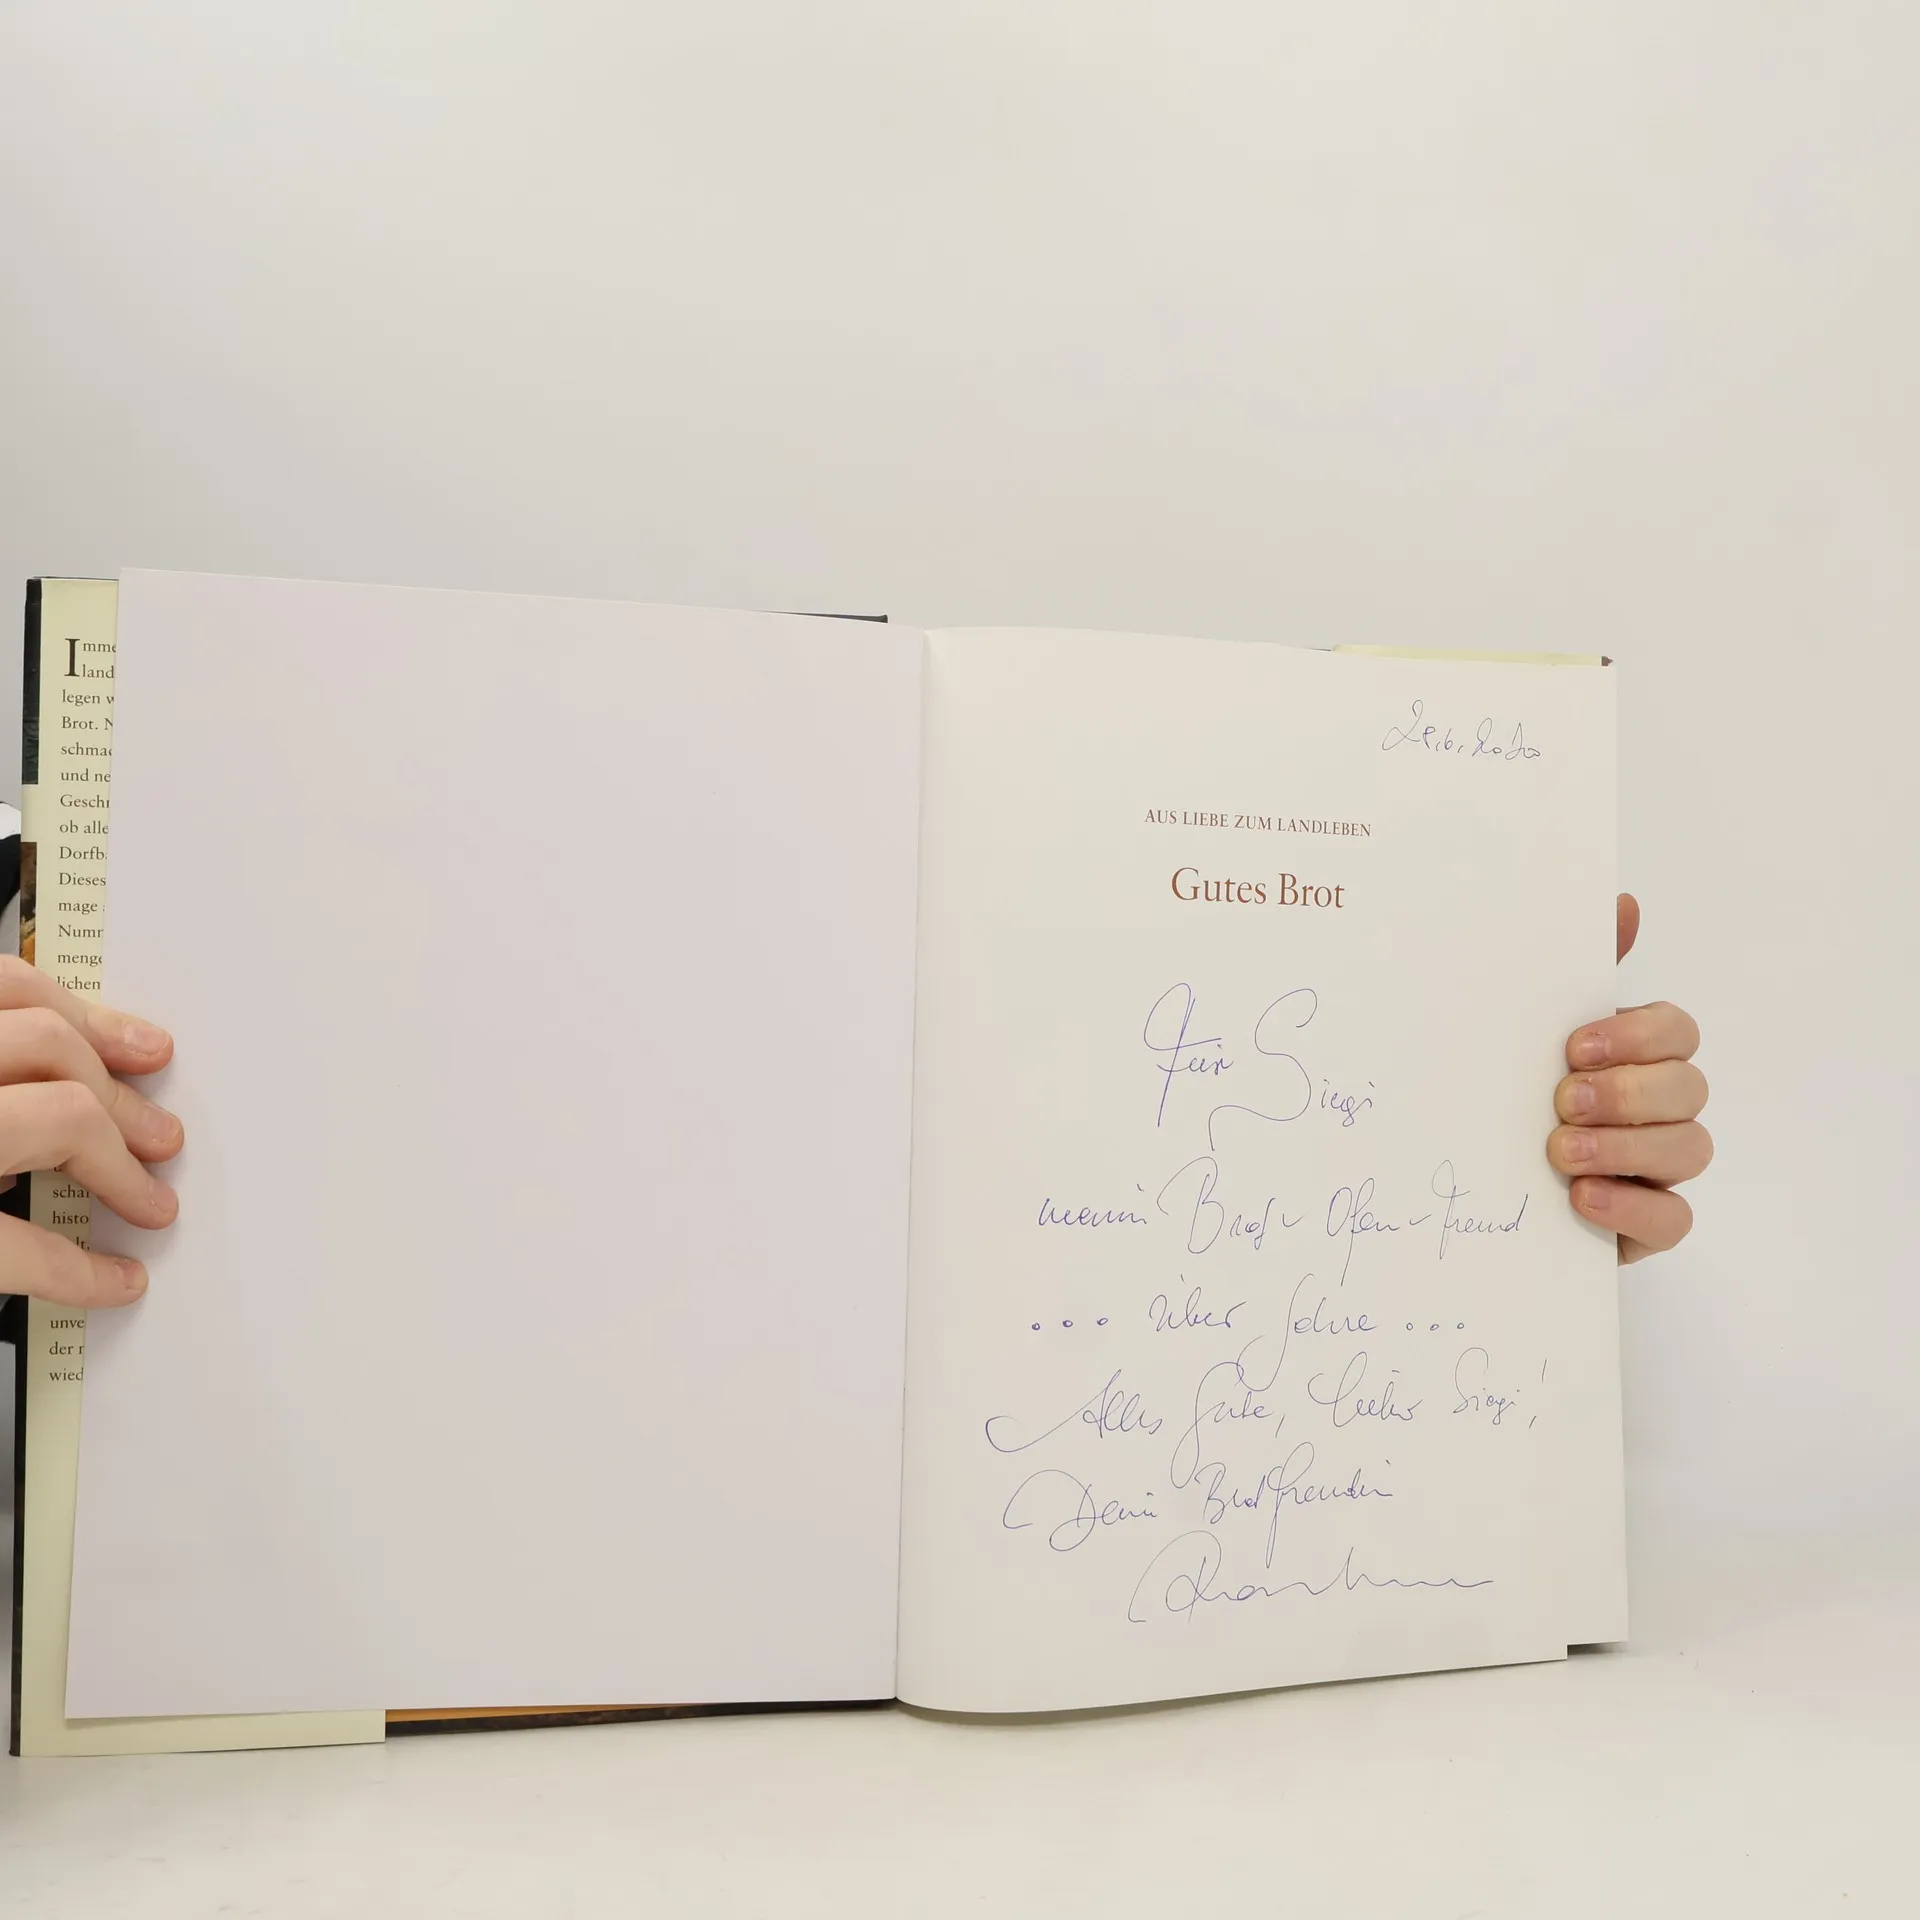 Imme
land
legen w
Brot. N
schmac
und ne
Geschr
ob alle
Dorfb
Dieses
mage
Numr
menge
lichen
schaf
histo
lt.
unve
der r
wied
AUS LIEBE ZUM LANDLEBEN
Gutes Brot
Für Siegi
meinen Brot- Ofen- Freund
... über Jahre ...
Alles Gute, lieber Siegi!
Deine Brotfreundin